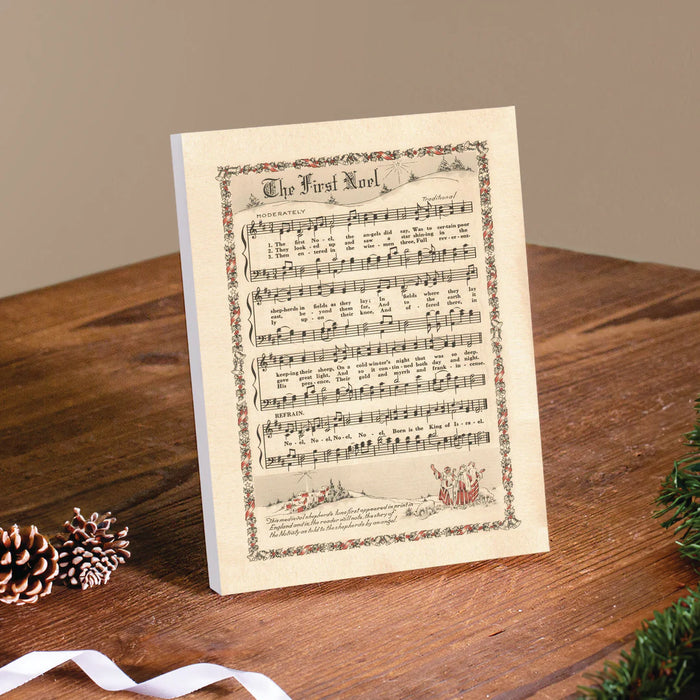 The First Noel
Traditional
MODERATELY
1. The first No - el, the an-gels did say, Was to cer-tain poor
2. They look - ed up and saw a star shin-ing in the
3. Then en - tered in the wise men three, Full rev-er-ent-
shep-herds in fields as they lay; In fields where they lay
east, be - yond them far, And to the earth it
ly up - on their knee, And of - fered there, in
keep-ing their sheep, On a cold win-ter's night that was so deep.
gave great light, And so it con-tin-ued both day and night.
His pres-ence, Their gold and myrrh and frank-in-cense.
REFRAIN.
No - el, No-el, No-el, No-el, Born is the King of Is-ra-el.
This medieval shepherds tune first appeared in print in
England and in, the reader will note, the story of
the Nativity as told to the shepherds by an angel.